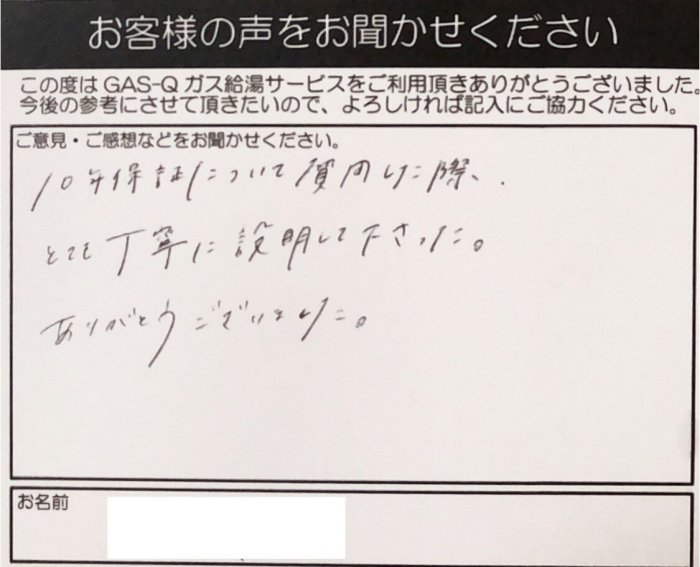 お客様の声をお聞かせください
この度は GAS-Q ガス給湯サービスをご利用頂きありがとうございました。
今後の参考にさせて頂きたいので、よろしければ記入にご協力ください。
ご意見・ご感想などをお聞かせください。
10年保証について質問した際、
とても丁寧に説明して下さった。
ありがとうございました。
お名前